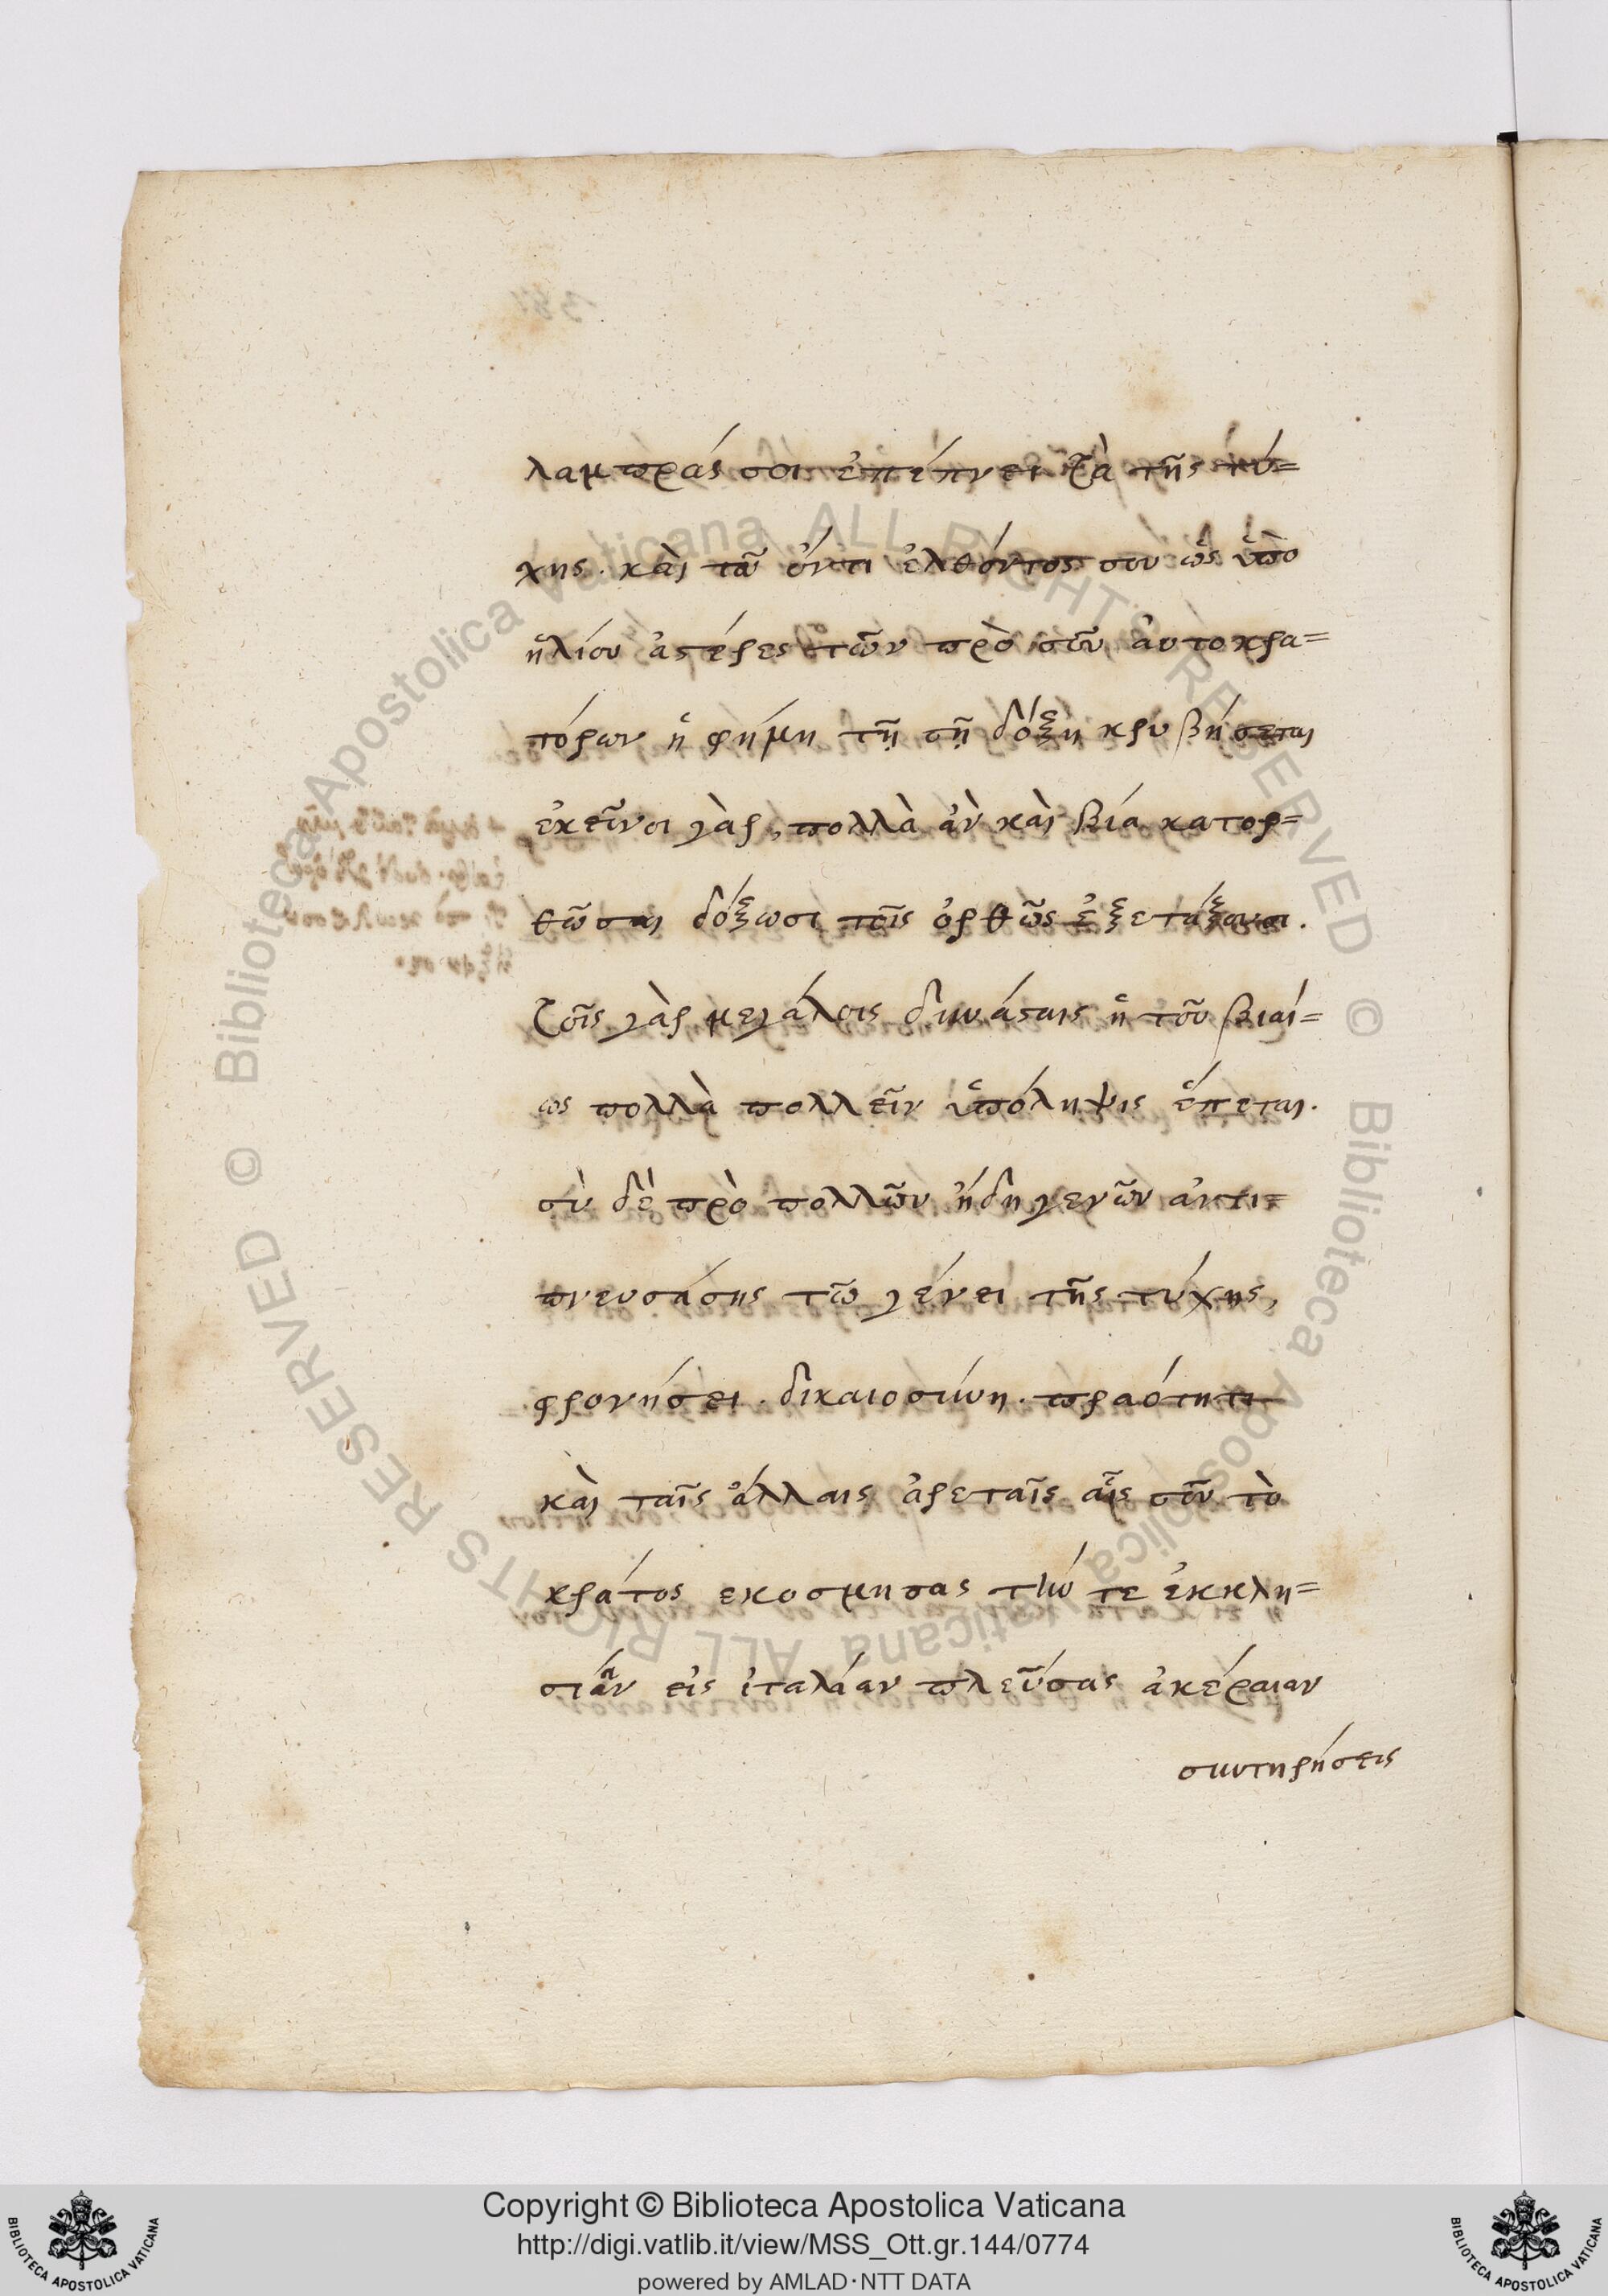 λαμπράς σοι ἐπέπνει τὰ τῆς τύ=
χης. καὶ τῶ ὄντι ἐλθόντος σου ὡς ὑπὸ
ἡλίου ἀστέρες τῶν πρὸ σοῦ ἀυτοκρα=
τόρων ἡ φήμη τῇ σῇ δόξῃ κρυβήσεται
ἐκεῖνοι γὰρ, πολλὰ ἂν καὶ βία κατορ=
θῶσαι δόξωσι τοῖς ὀρθῶς ἐξετάζουσι.
τοῖς γὰρ μεγάλοις δυνάσταις ἡ τοῦ βιαί=
ως πολλὰ πολλεῖν ὑπόληψις ἕπεται.
σὺ δὲ πρὸ πολλῶν ἤδη γενῶν ἀντι=
πνευσάσης τῶ γένει τῆς τύχης,
φρονήσει. δικαιοσύνη. πραότητι
καὶ ταῖς ἄλλαις ἀρεταῖς αἷς σοῦ τὸ
κράτος εκοσμησας τὴν τε ἐκκλη=
σίαν εἰς ἰταλίαν πλεύσας ἀκέραιαν
συντηρήσεις
Copyright © Biblioteca Apostolica Vaticana
http://digi.vatlib.it/view/MSS_Ott.gr.144/0774
powered by AMLAD·NTT DATA
BIBLIOTECA APOSTOLICA VATICANA
BIBLIOTECA APOSTOLICA VATICANA
© Biblioteca Apostolica Vaticana ALL RIGHTS RESERVED
© Biblioteca Apostolica Vaticana ALL RIGHTS RESERVED